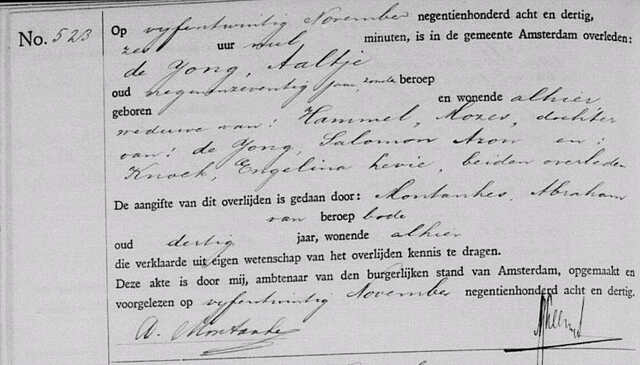 No. 523
Op vyfentwintig November negentienhonderd acht en dertig,
zes uur nul minuten, is in de gemeente Amsterdam overleden:
de Jong, Aaltje
oud negenenzeventig jaar, zonder beroep
geboren en wonende alhier
weduwe van: Hammel, Mozes, dochter
van: de Jong, Salomon Aron en:
Knoek, Engelina Levie, beiden overleden
De aangifte van dit overlijden is gedaan door: Montankes, Abraham
van beroep bode
oud dertig jaar, wonende alhier
die verklaarde uit eigen wetenschap van het overlijden kennis te dragen.
Deze akte is door mij, ambtenaar van den burgerlijken stand van Amsterdam, opgemaakt en
voorgelezen op vyfentwintig November negentienhonderd acht en dertig.
A. Montankes